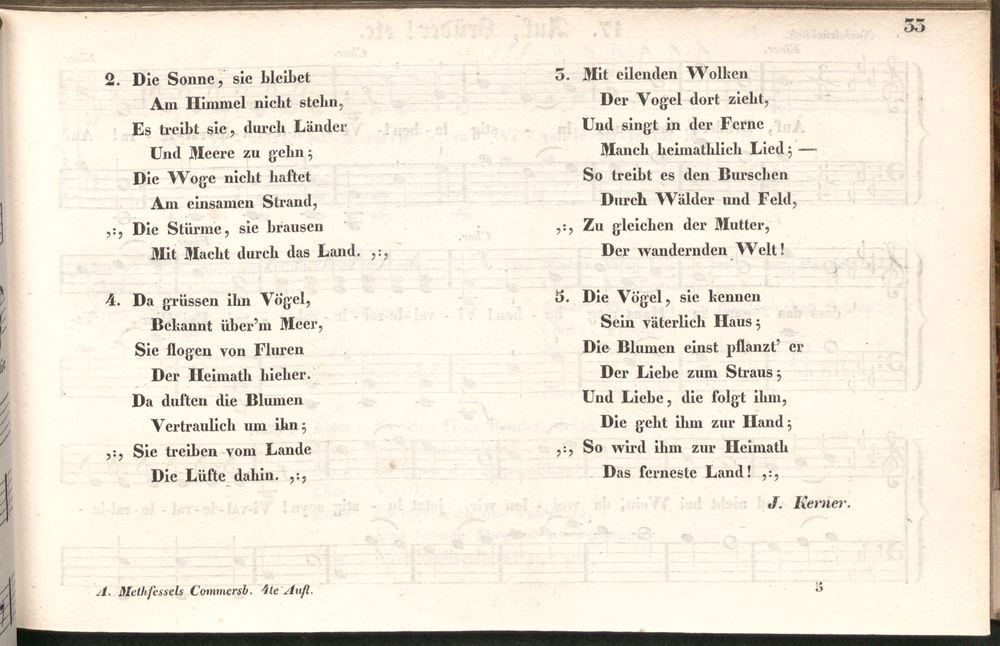 33
2. Die Sonne, sie bleibet
Am Himmel nicht stehn,
Es treibt sie, durch Länder
Und Meere zu gehn;
Die Woge nicht haftet
Am einsamen Strand,
,:, Die Stürme, sie brausen
Mit Macht durch das Land. ,:,
3. Mit eilenden Wolken
Der Vogel dort zieht,
Und singt in der Ferne
Manch heimathlich Lied; —
So treibt es den Burschen
Durch Wälder und Feld,
,:, Zu gleichen der Mutter,
Der wandernden Welt!
4. Da grüssen ihn Vögel,
Bekannt über'm Meer,
Sie flogen von Fluren
Der Heimath hieher.
Da duften die Blumen
Vertraulich um ihn;
,:, Sie treiben vom Lande
Die Lüfte dahin. ,:,
5. Die Vögel, sie kennen
Sein väterlich Haus;
Die Blumen einst pflanzt' er
Der Liebe zum Straus;
Und Liebe, die folgt ihm,
Die geht ihm zur Hand;
,:, So wird ihm zur Heimath
Das ferneste Land! ,:,
J. Kerner.
A. Methfessels Commersb. 4te Aufl.
5